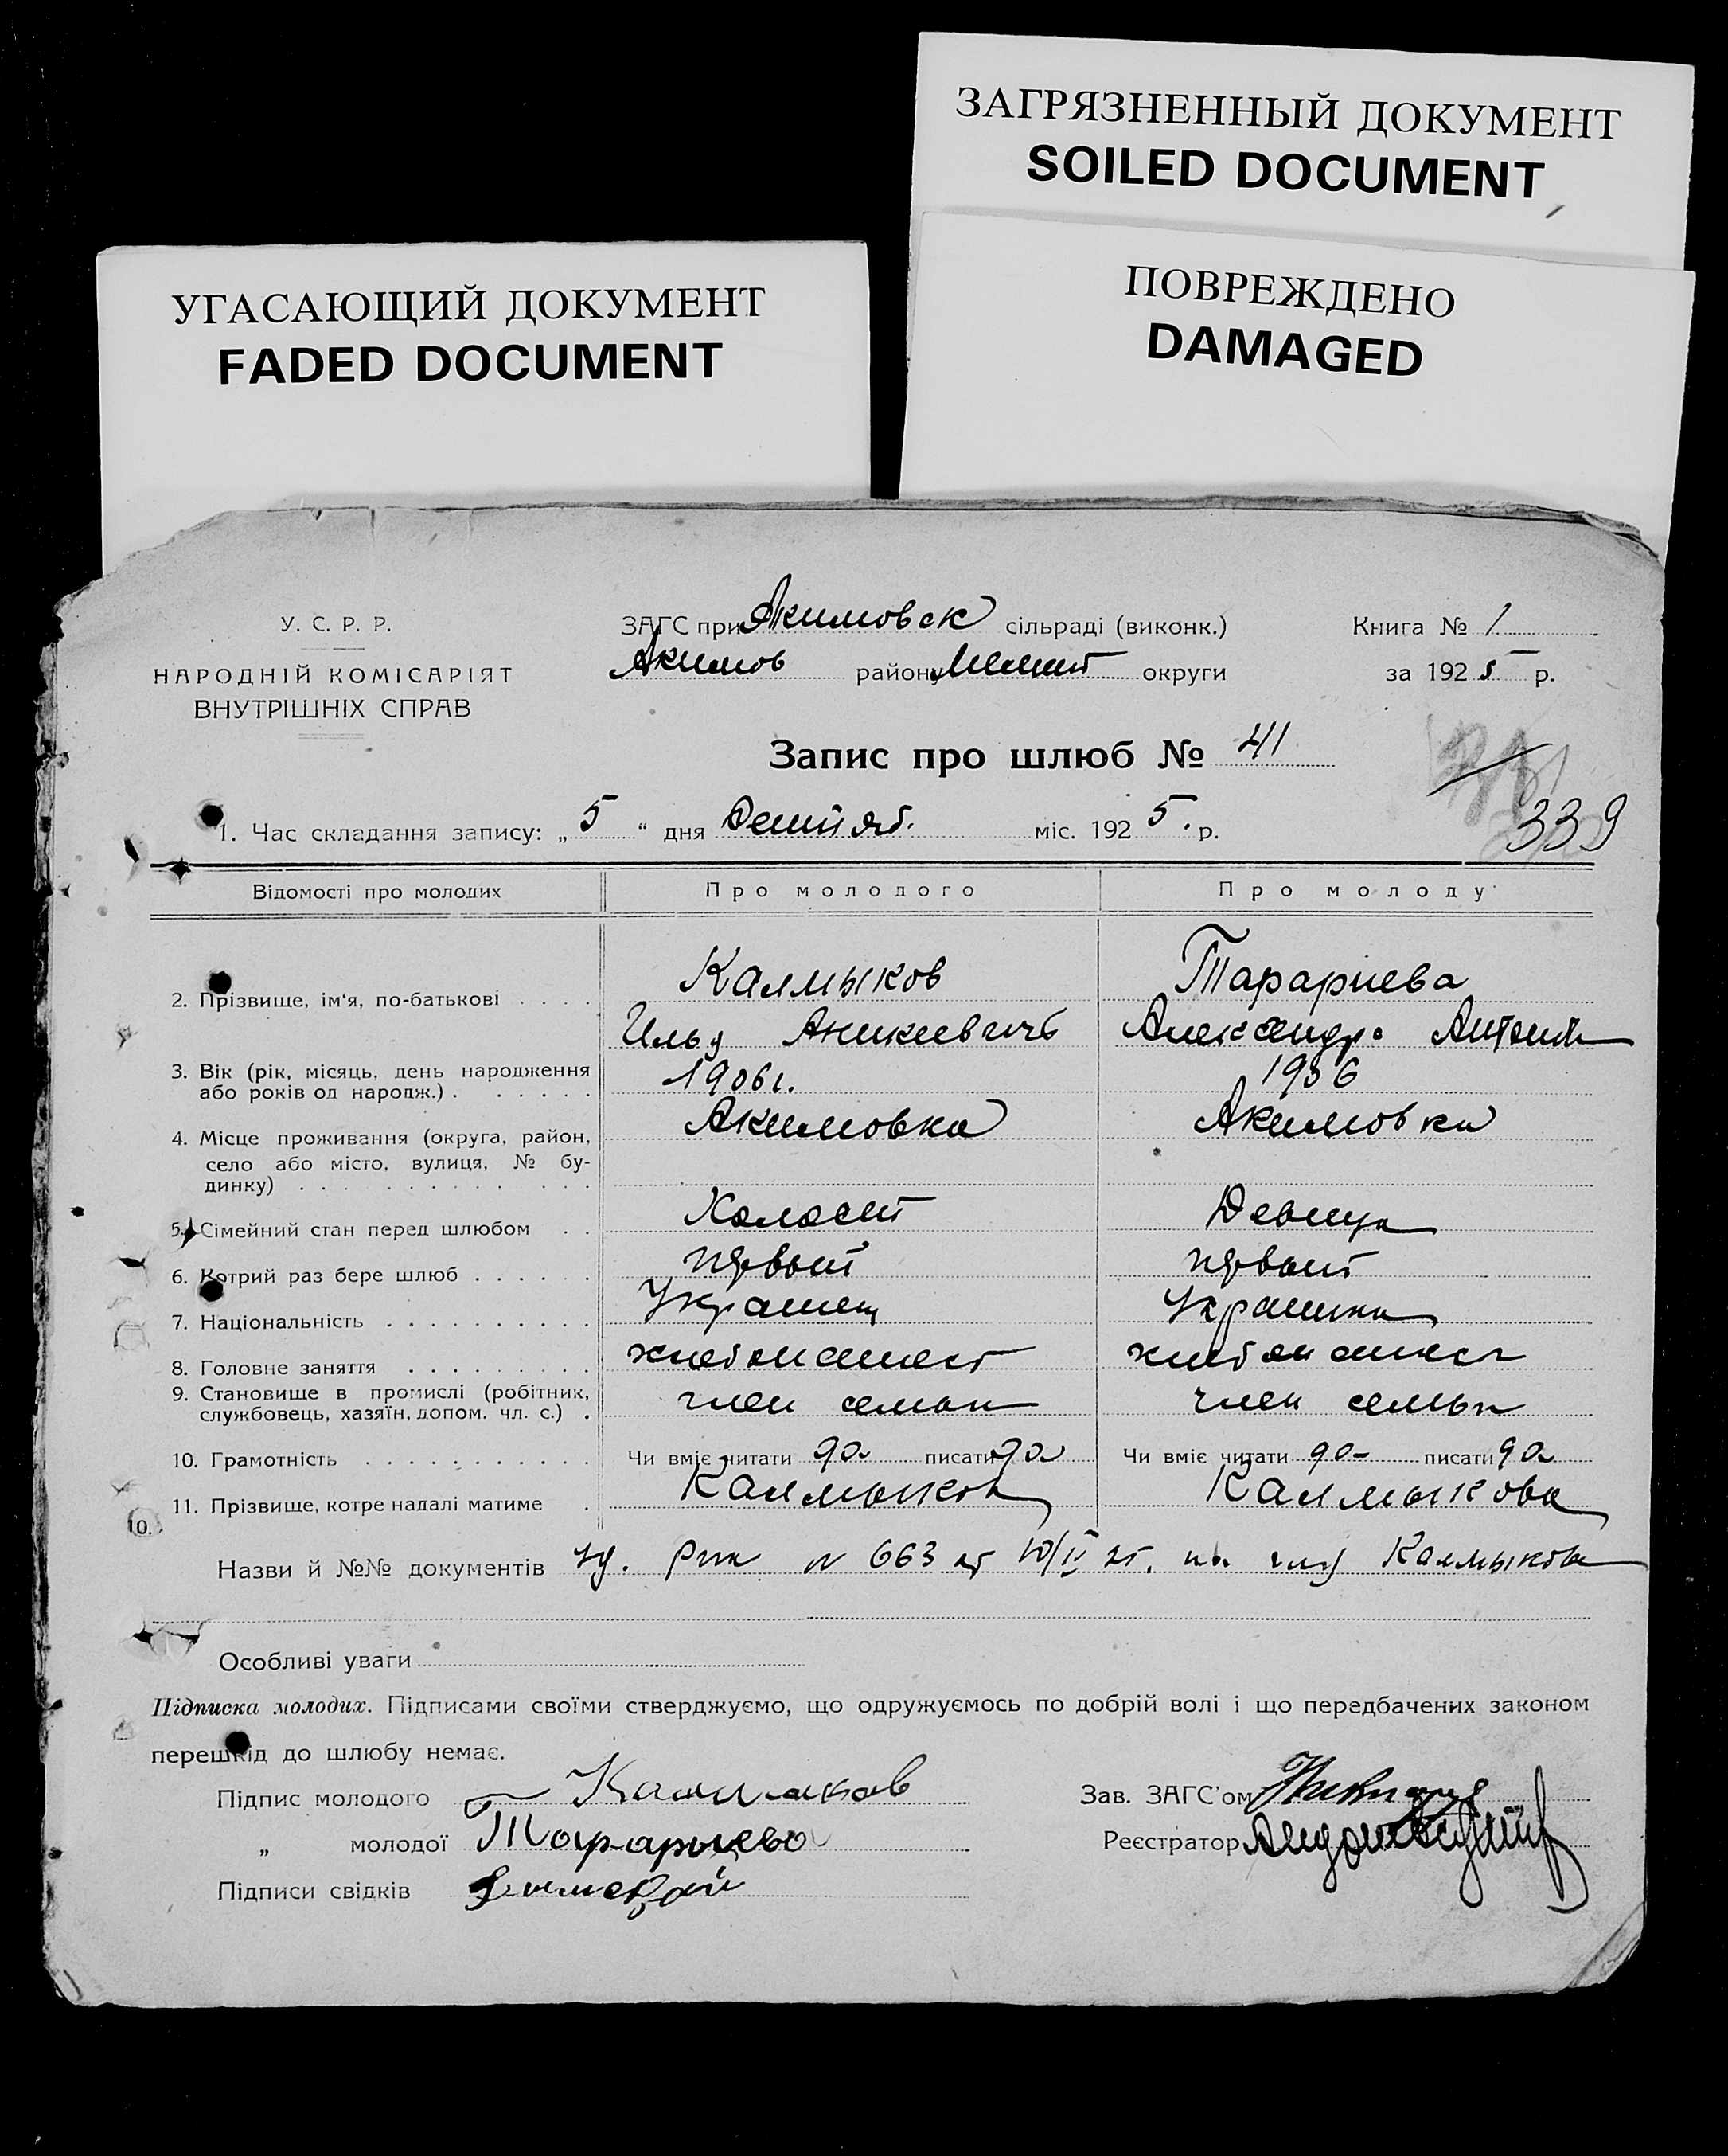 ЗАГРЯЗНЕННЫЙ ДОКУМЕНТ
SOILED DOCUMENT
УГАСАЮЩИЙ ДОКУМЕНТ
FADED DOCUMENT
ПОВРЕЖДЕНО
DAMAGED
У. С. Р. Р.
НАРОДНІЙ КОМІСАРІЯТ
ВНУТРІШНІХ СПРАВ
ЗАГС при Акимовск сільраді (виконк.)
Акимов району Мелит округи
Книга № 1
за 1925 р.
Запис про шлюб № 41
339
1. Час складання запису: „5“ дня міс. 1925. р.
Відомості про молодих Про молодого Про молоду
2. Прізвище, ім'я, по-батькові . . . . Калмыков Тарариева
Илья Аникиевичь Александра Антон
3. Вік (рік, місяць, день народження 1906г. 1906
або років од народж.) . . . . . .
4. Місце проживання (округа, район, Акимовка Акимовка
село або місто, вулиця, № бу-
динку) . . . . . . . . . . . .
5. Сімейний стан перед шлюбом . . Холост Девица
6. Котрий раз бере шлюб . . . . . . первый первый
7. Національність . . . . . . . . . . Украинец Украинка
8. Головне заняття . . . . . . . . . хлебопашест хлебопашест
9. Становище в промислі (робітник, член семьи член семьи
службовець, хазяїн, допом. чл. с.) .
10. Грамотність . . . . . . . . . . . Чи вміє читати да писати да Чи вміє читати да писати да
11. Прізвище, котре надалі матиме . Калмыков Калмыкова
10.
Назви й №№ документів уд. Рик № 663 от 10/II 25. на имя Калмыкова
Особливі уваги
Підписка молодих. Підписами своїми стверджуємо, що одружуємось по добрій волі і що передбачених законом
перешкід до шлюбу немає.
Підпис молодого Калмыков
Зав. ЗАГС'ом
„ молодої Тарариева
Реєстратор
Підписи свідків